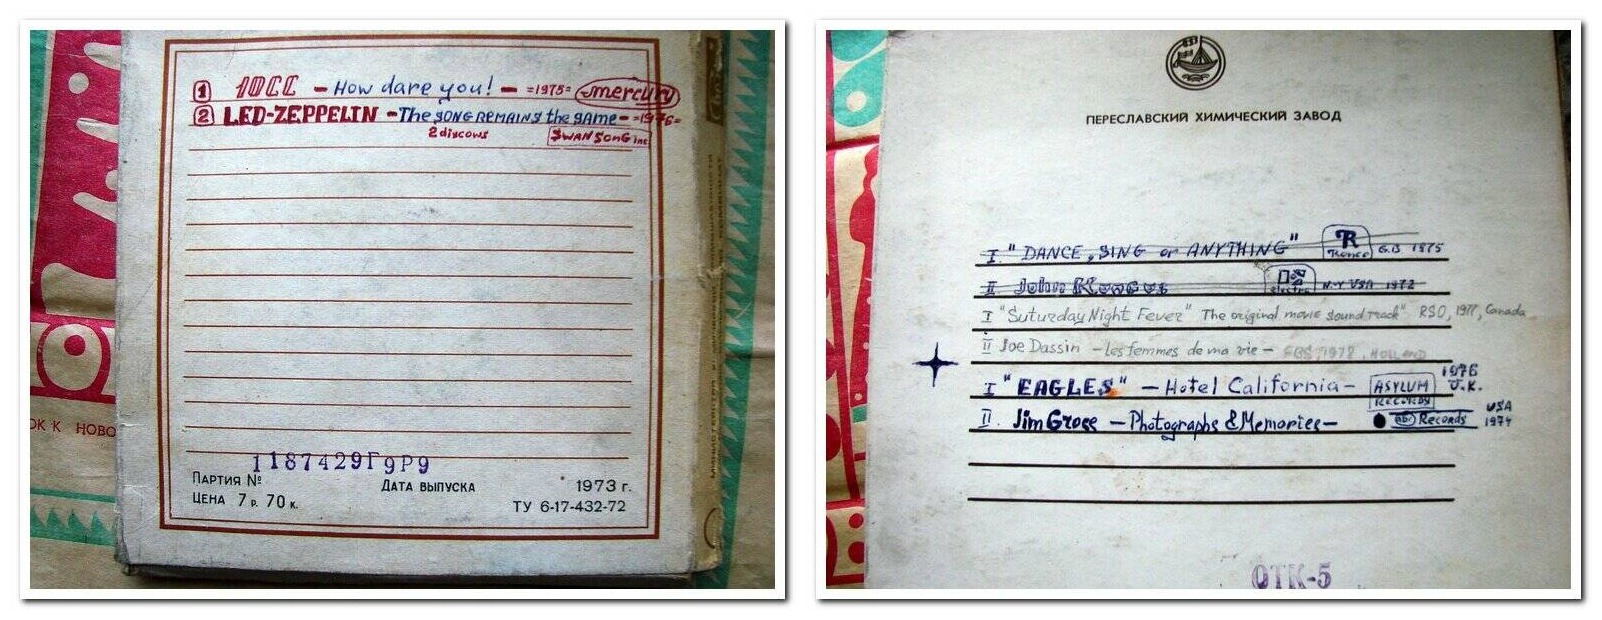 1 10CC - How dare you! - =1975= mercury
2 LED-ZEPPELIN - The song remains the game - =1976=
2 discows SWAN SONG inc
1187429Г9Р9
Партия № Дата выпуска 1973 г.
Цена 7 р. 70 к. ТУ 6-17-432-72
ОК К НОВО
ПЕРЕСЛАВСКИЙ ХИМИЧЕСКИЙ ЗАВОД
I "DANCE, SING or ANYTHING" R Ronco G.B 1975
II John Kongos N.Y USA 1972
I "Suturday Night Fever" The original movie soundtrack". RSO, 1977, Canada
II Joe Dassin - les femmes de ma vie - CBS, 1978, HOLLAND
I "EAGLES" - Hotel California - ASYLUM RECORDS 1976 U.K.
II. Jim Groce - Photographs & Memories - abc Records USA 1974
ОТК-5